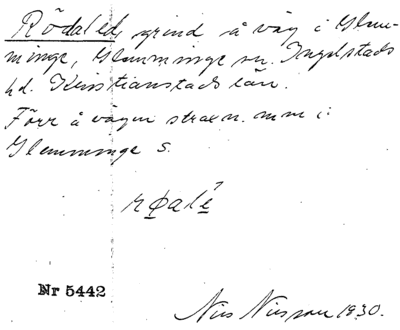 Rödaled, grind å väg i Glem-
minge, Glemminge sn. Ingelstads
hd. Kristianstads län.
Förr å vägen strax n. om i
Glemminge s.
Nr 5442
Nils Nilsson 1930.